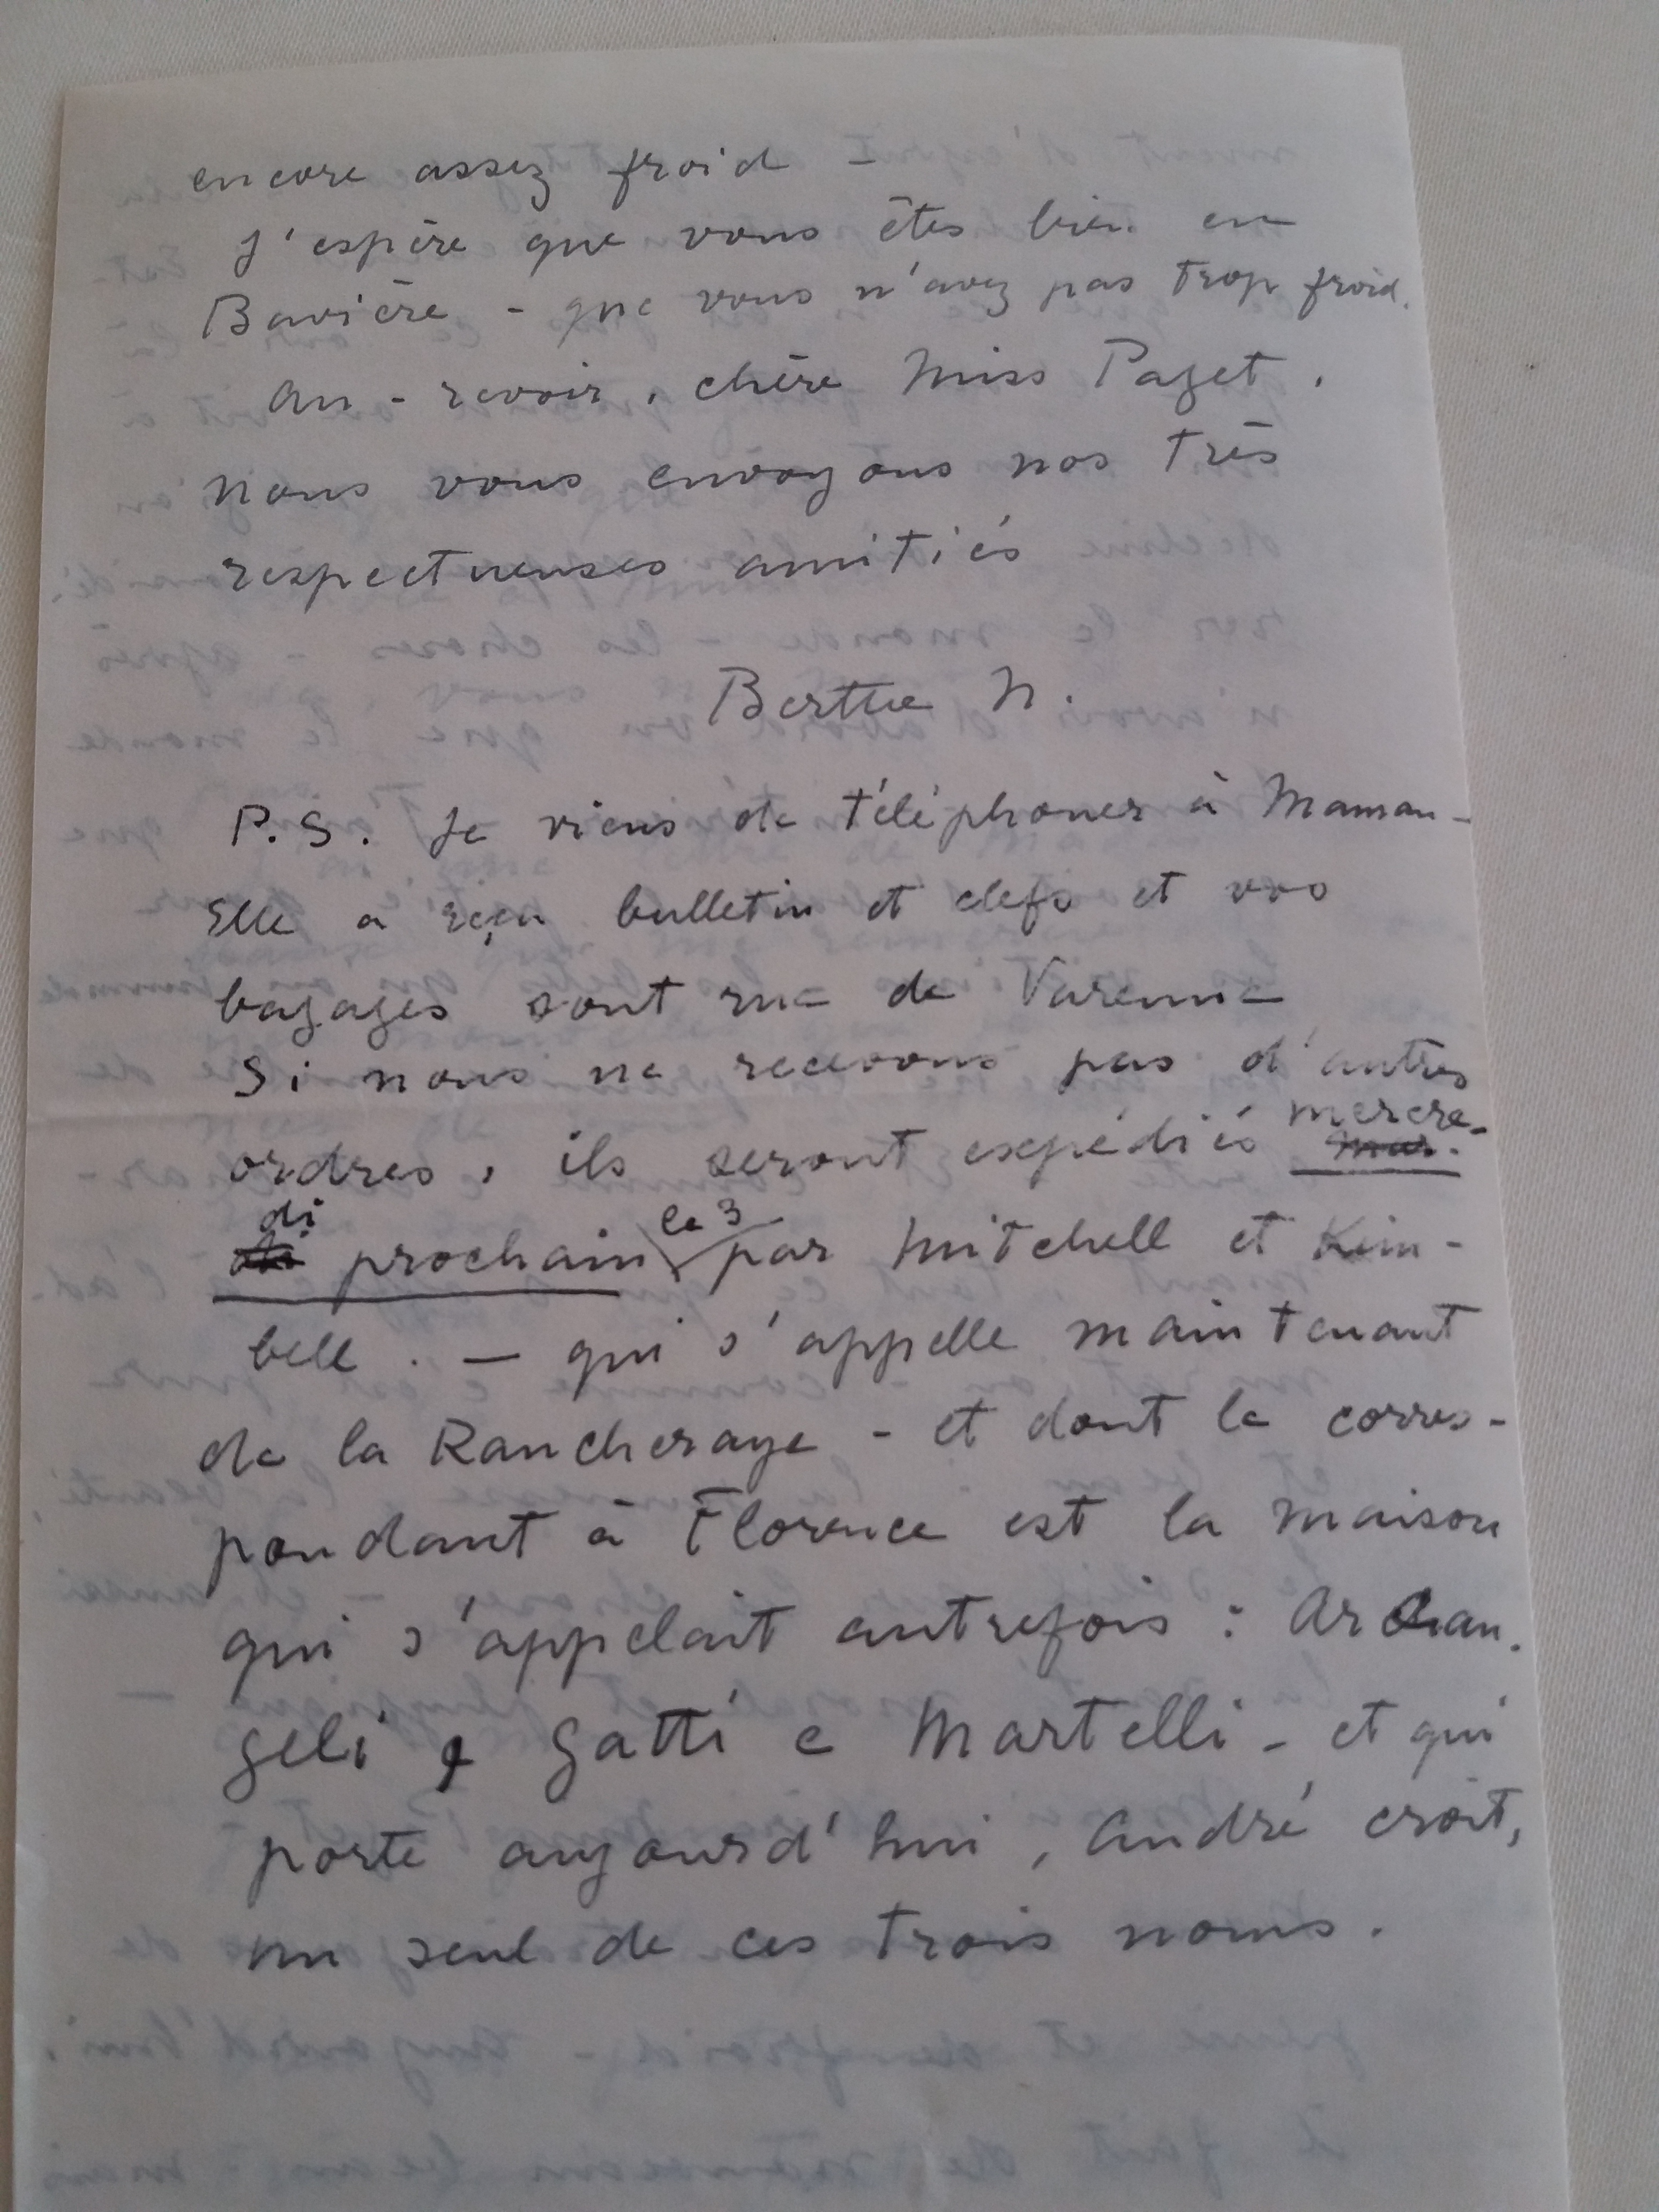 encore assez froid –
J'espère que vous êtes bien en
Bavière – que vous n'avez pas trop froid.
Au-revoir, chère Miss Paget,
Nous vous envoyons nos très
respectueuses amitiés
Berthe N.
P.S. Je viens de téléphoner à Maman –
Elle a reçu bulletin et clefs et vos
bagages sont rue de Varenne
Si nous ne recevons pas d'autres
ordres, ils seront expédiés mercre-
di prochain le 3 par Mitchell et Kim-
bell. — qui s'appelle maintenant
de la Rancheraye – et dont le corres-
pondant à Florence est la maison
qui s'appelait autrefois : Archan-
geli & Gatti e Martelli – et qui
porte aujourd'hui, André croit,
un seul de ces trois noms.